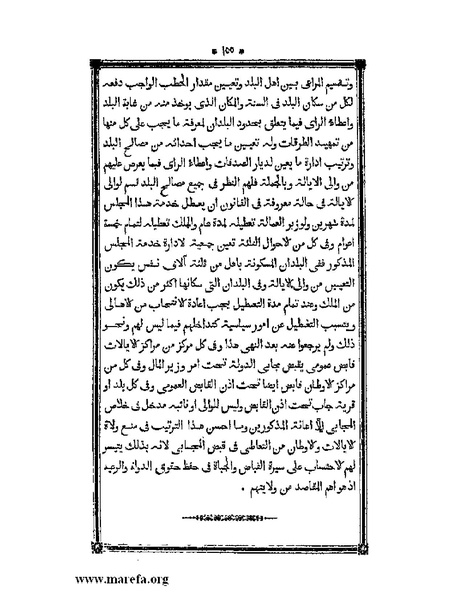 * ١٥٥ *
وتقسيم المراعى بين اهل البلد وتعيين مقدار الحطب الواجب دفعه
لكل من سكان البلد فى السنة والمكان الذى يوخذ منه من غابة البلد
واعطاء الراى فيما يتعلق بحدود البلدان لمعرفة ما يجب على كل منها
من تمهيد الطرقات وله تعيين ما يجب احداثه من مصالح البلد
وترتيب ادارة ما يعين لديار الصدقات واعطاء الراى فيما يعرض عليهم
من والى الايالة وبالجملة فلهم النظر فى جميع مصالح البلد ثم لوالى
كلايالة فى حالة معروفة فى القانون ان يعطل خدمة هذا المجلس
مدة شهرين ولوزير العمالة تعطيله لمدة عام والملك تعطيله لتمام خمسة
اعوام وفى كل من كلاحوال الثلثة تعين جمعية لادارة خدمة المجلس
المذكور ففى البلدان المسكونة باقل من ثلثة آلاف نفس يكون
التعيين من والى كلايالة وفى البلدان التى سكانها اكثر من ذلك يكون
من الملك وعند تمام مدة التعطيل يجب اعادة كلانتخاب من كلاهالى
ويتسبب التعطيل عن امور سياسية كتداخلهم فيما ليس لهم ونحو
ذلك ولم يرجعوا عنه بعد النهى هذا وفى كل مركز من مراكز كلايالات
قابض عمومى يقبض مجابى الدولة تحت امر وزير المال وفى كل من
مراكز كلاوطان قابض ايضا تحت اذن القابض العمومى وفى كل بلد او
قرية جاب تحت اذن القابض وليس للوالى او نائبه مدخل فى خلاص
المجابى الا اعانة المذكورين وما احسن هذا الترتيب فى منع ولاة
كلايالات وكلاوطان من التعاطى فى قبض المجابى لانه بذلك يتيسر
لهم كلاحتساب على سيرة القباض والجباة فى حفظ حقوق الدولة والرعية
اذ هو اهم المقاصد من ولايتهم .
www.marefa.org